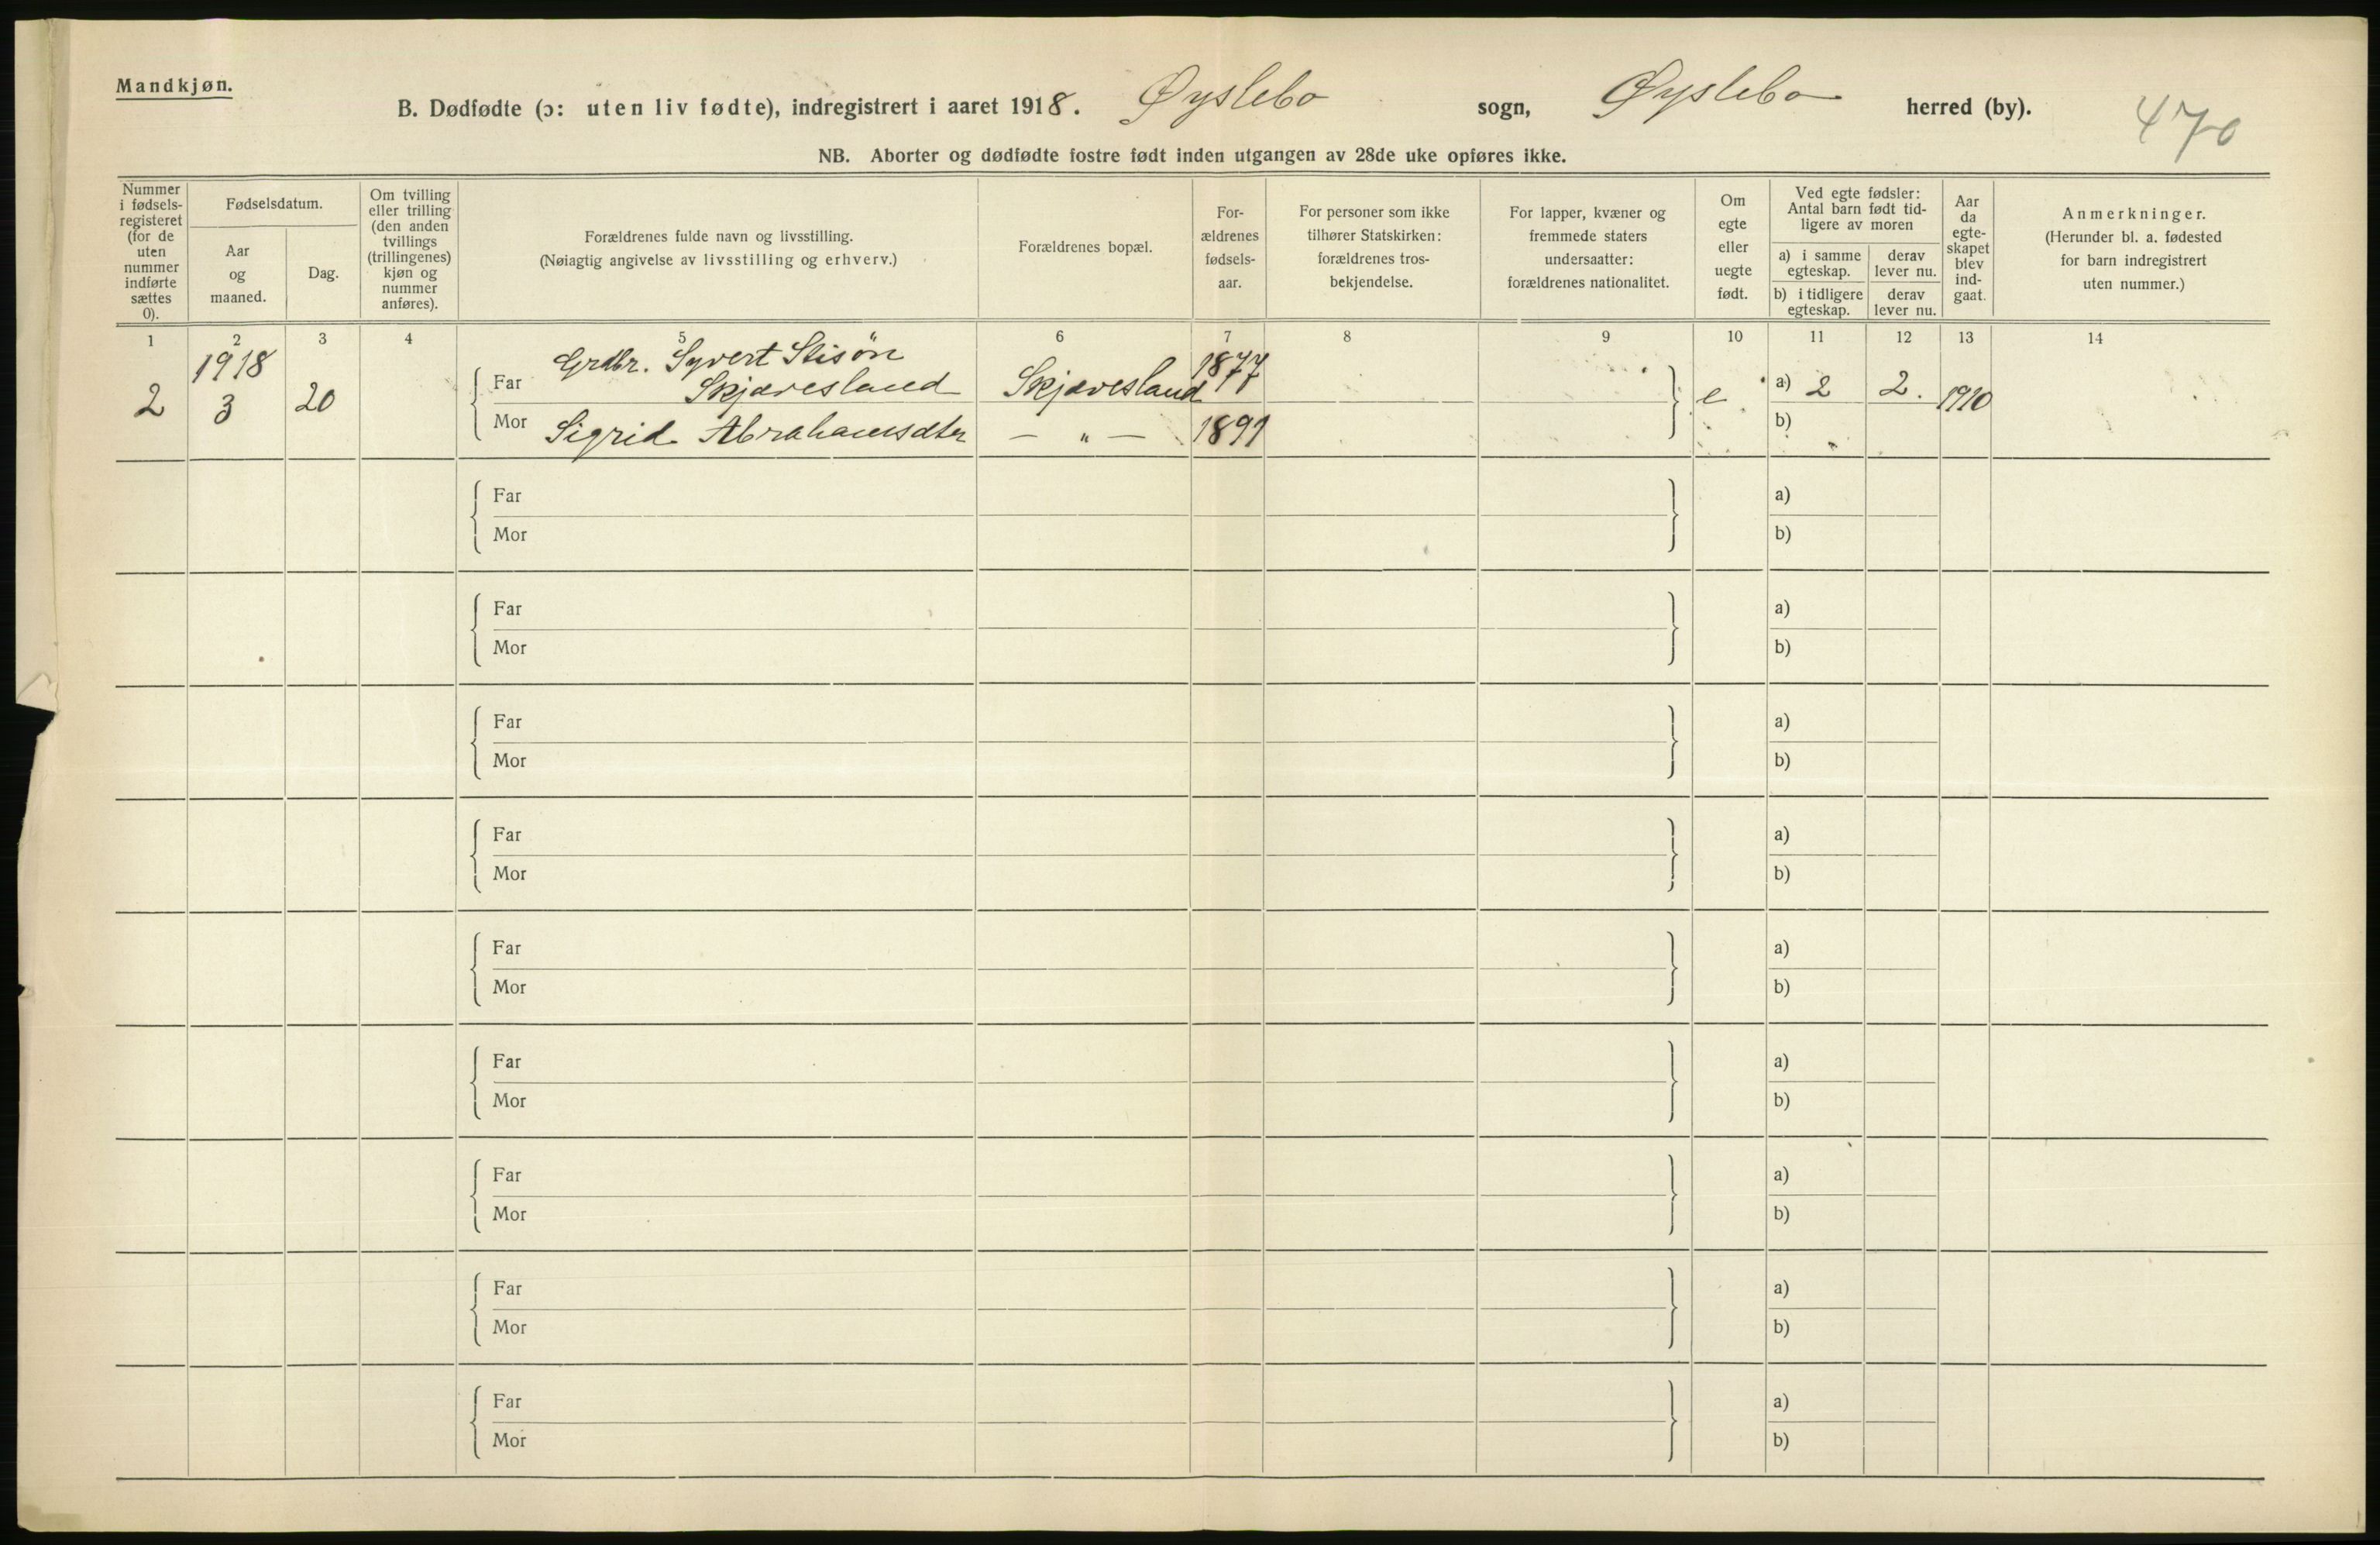 Mandkjøn.
B. Dødfødte (ɔ: uten liv fødte), indregistrert i aaret 1918. Øyslebo sogn, Øyslebo herred (by).
470
NB. Aborter og dødfødte fostre født inden utgangen av 28de uke opføres ikke.
Nummer i fødsels-registeret (for de uten nummer indførte sættes 0).
Fødselsdatum.
Aar og maaned.
Dag.
Om tvilling eller trilling (den anden tvillings (trillingenes) kjøn og nummer anføres).
Forældrenes fulde navn og livsstilling.
(Nøiagtig angivelse av livsstilling og erhverv.)
Forældrenes bopæl.
For-ældrenes fødsels-aar.
For personer som ikke tilhører Statskirken: forældrenes tros-bekjendelse.
For lapper, kvæner og fremmede staters undersaatter: forældrenes nationalitet.
Om egte eller uegte født.
Ved egte fødsler: Antal barn født tid-ligere av moren
a) i samme egteskap.
derav lever nu.
b) i tidligere egteskap.
derav lever nu.
Aar da egte-skapet blev ind-gaat.
Anmerkninger.
(Herunder bl. a. fødested for barn indregistrert uten nummer.)
1 2 3 4 5 6 7 8 9 10 11 12 13 14
1918
Grdbr. Syvert Stisøn
1877
2 3 20 Far Skjævesland Skjævesland e a) 2 2. 1910
Mor Sigrid Abrahamsdter — " — 1891 b)
Far a)
Mor b)
Far a)
Mor b)
Far a)
Mor b)
Far a)
Mor b)
Far a)
Mor b)
Far a)
Mor b)
Far a)
Mor b)
Far a)
Mor b)
Far a)
Mor b)